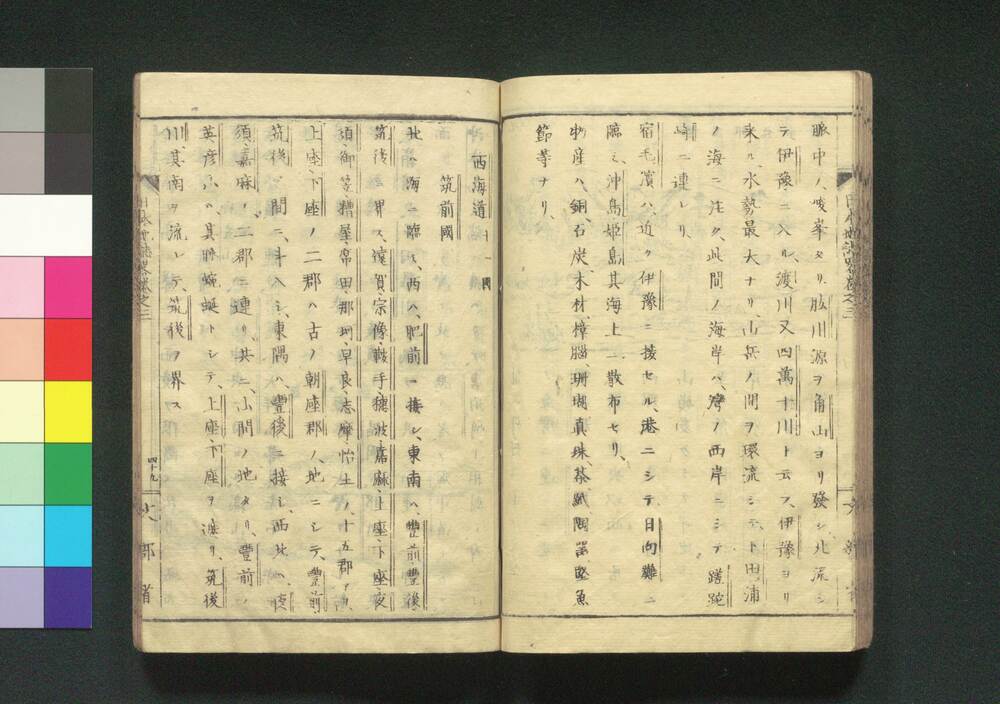 脈中ノ、峻峯タリ、肱川源ヲ角山ヨリ發シ北流シ
テ伊豫ニ入ル、渡川又四萬十川ト云フ、伊豫ヨリ
来ル、水勢最大ナリ、山岳ノ間ヲ環流シテ、下田浦
ノ海ニ注ク、此間ノ海岸ハ、灣ノ西岸ニシテ蹉跎
崎ニ連レリ、
宿毛濱ハ、迫ク伊豫ニ接セル、港ニシテ日向灘ニ
臨ミ、沖島姫島其海上ニ散布セリ、
物産ハ、銅、石炭、木材、樟腦、珊瑚、真珠、茶、紙、陶器、堅魚
節等ナリ、
西海道 十一國
筑前國
北ハ海ニ臨ミ、西ハ、肥前ニ接シ、東南ハ、豐前豐後
筑後ニ界ス、遠賀、宗像、鞍手、穂波、嘉麻、上座、下座、夜
須、御笠、糟屋、席田、那珂、早良、志摩、怡土ノ十五郡アリ、
上座、下座ノ二郡ハ古ノ朝座郡ノ、地ニシテ、豐前
筑後ノ間ニ、斗入シ、東隅ハ、豐後ニ接シ、西北ハ、夜
須、嘉麻ノ、二郡ニ連リ、共ニ山間ノ地タリ、豐前ノ
英彦山ハ、其脈蜿蜒トシテ、上座、下座ヲ渡リ、筑後
川、其南ヲ流レテ、筑後ヲ界ス
四十九
文部省